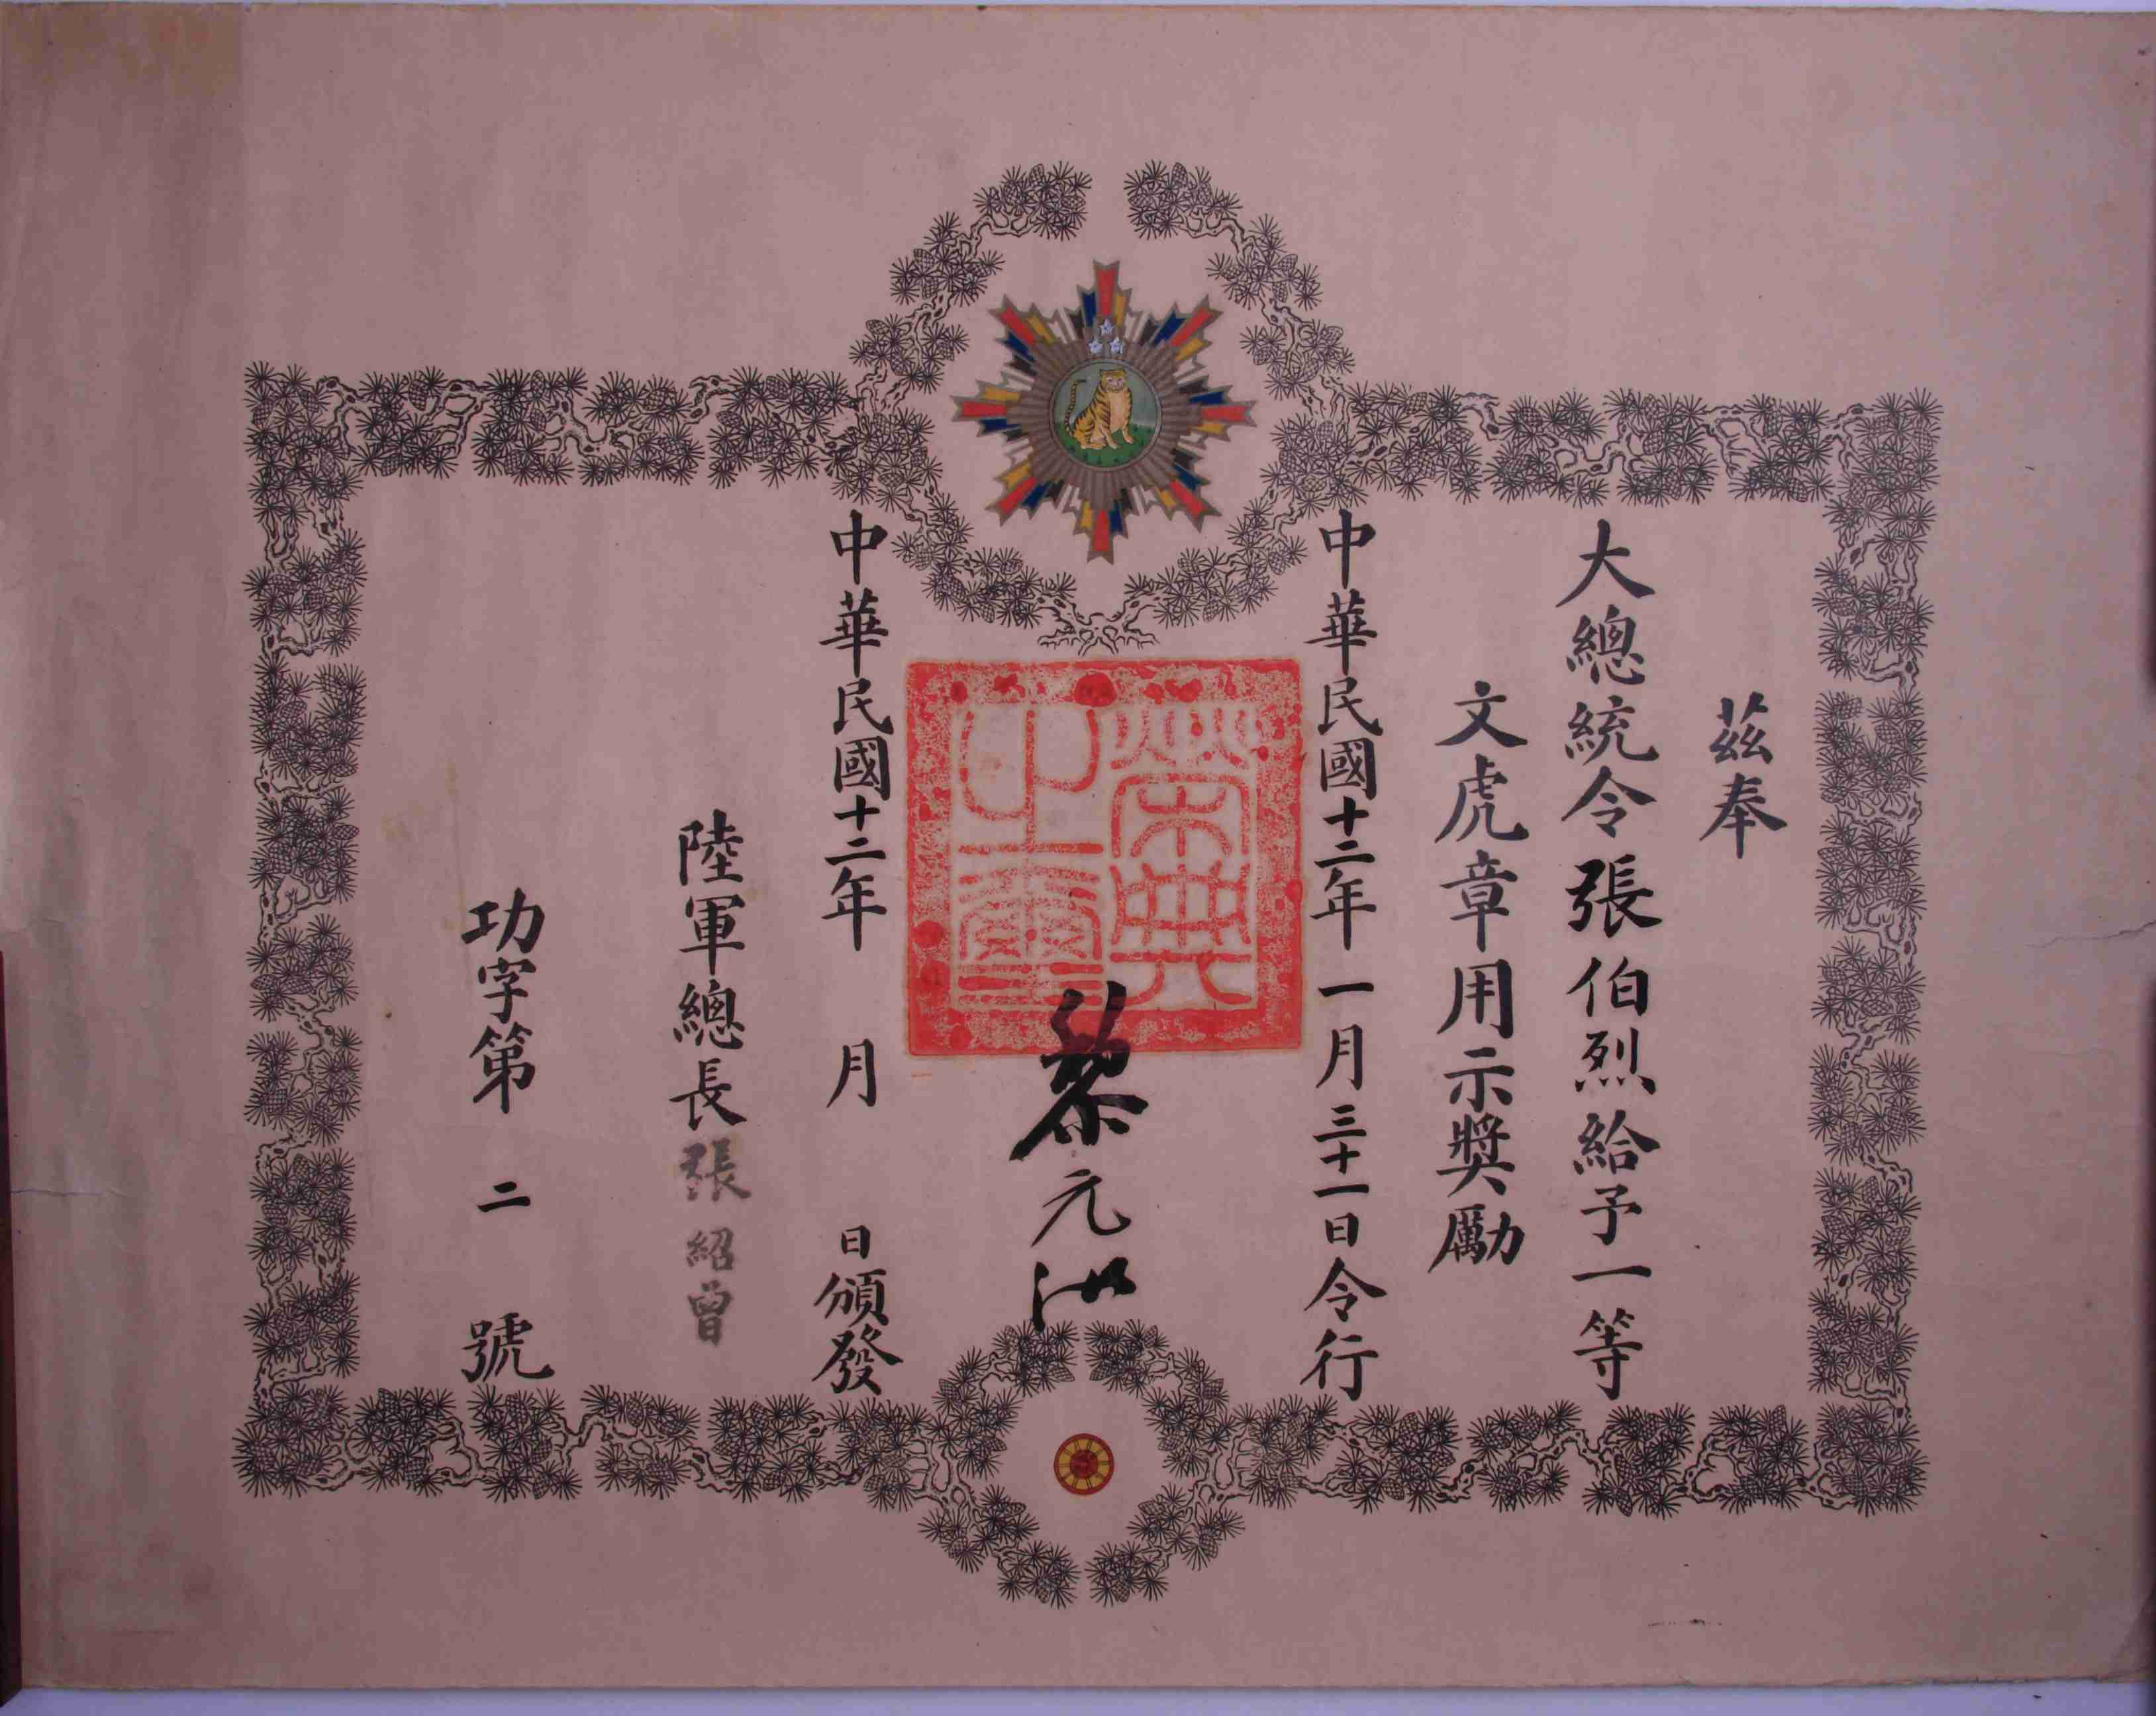 茲奉
大總統令張伯烈給予一等
文虎章用示獎勵
中華民國十二年一月三十一日令行
榮典之璽
黎元洪
中華民國十二年 月 日頒發
陸軍總長張紹曾
功字第二號